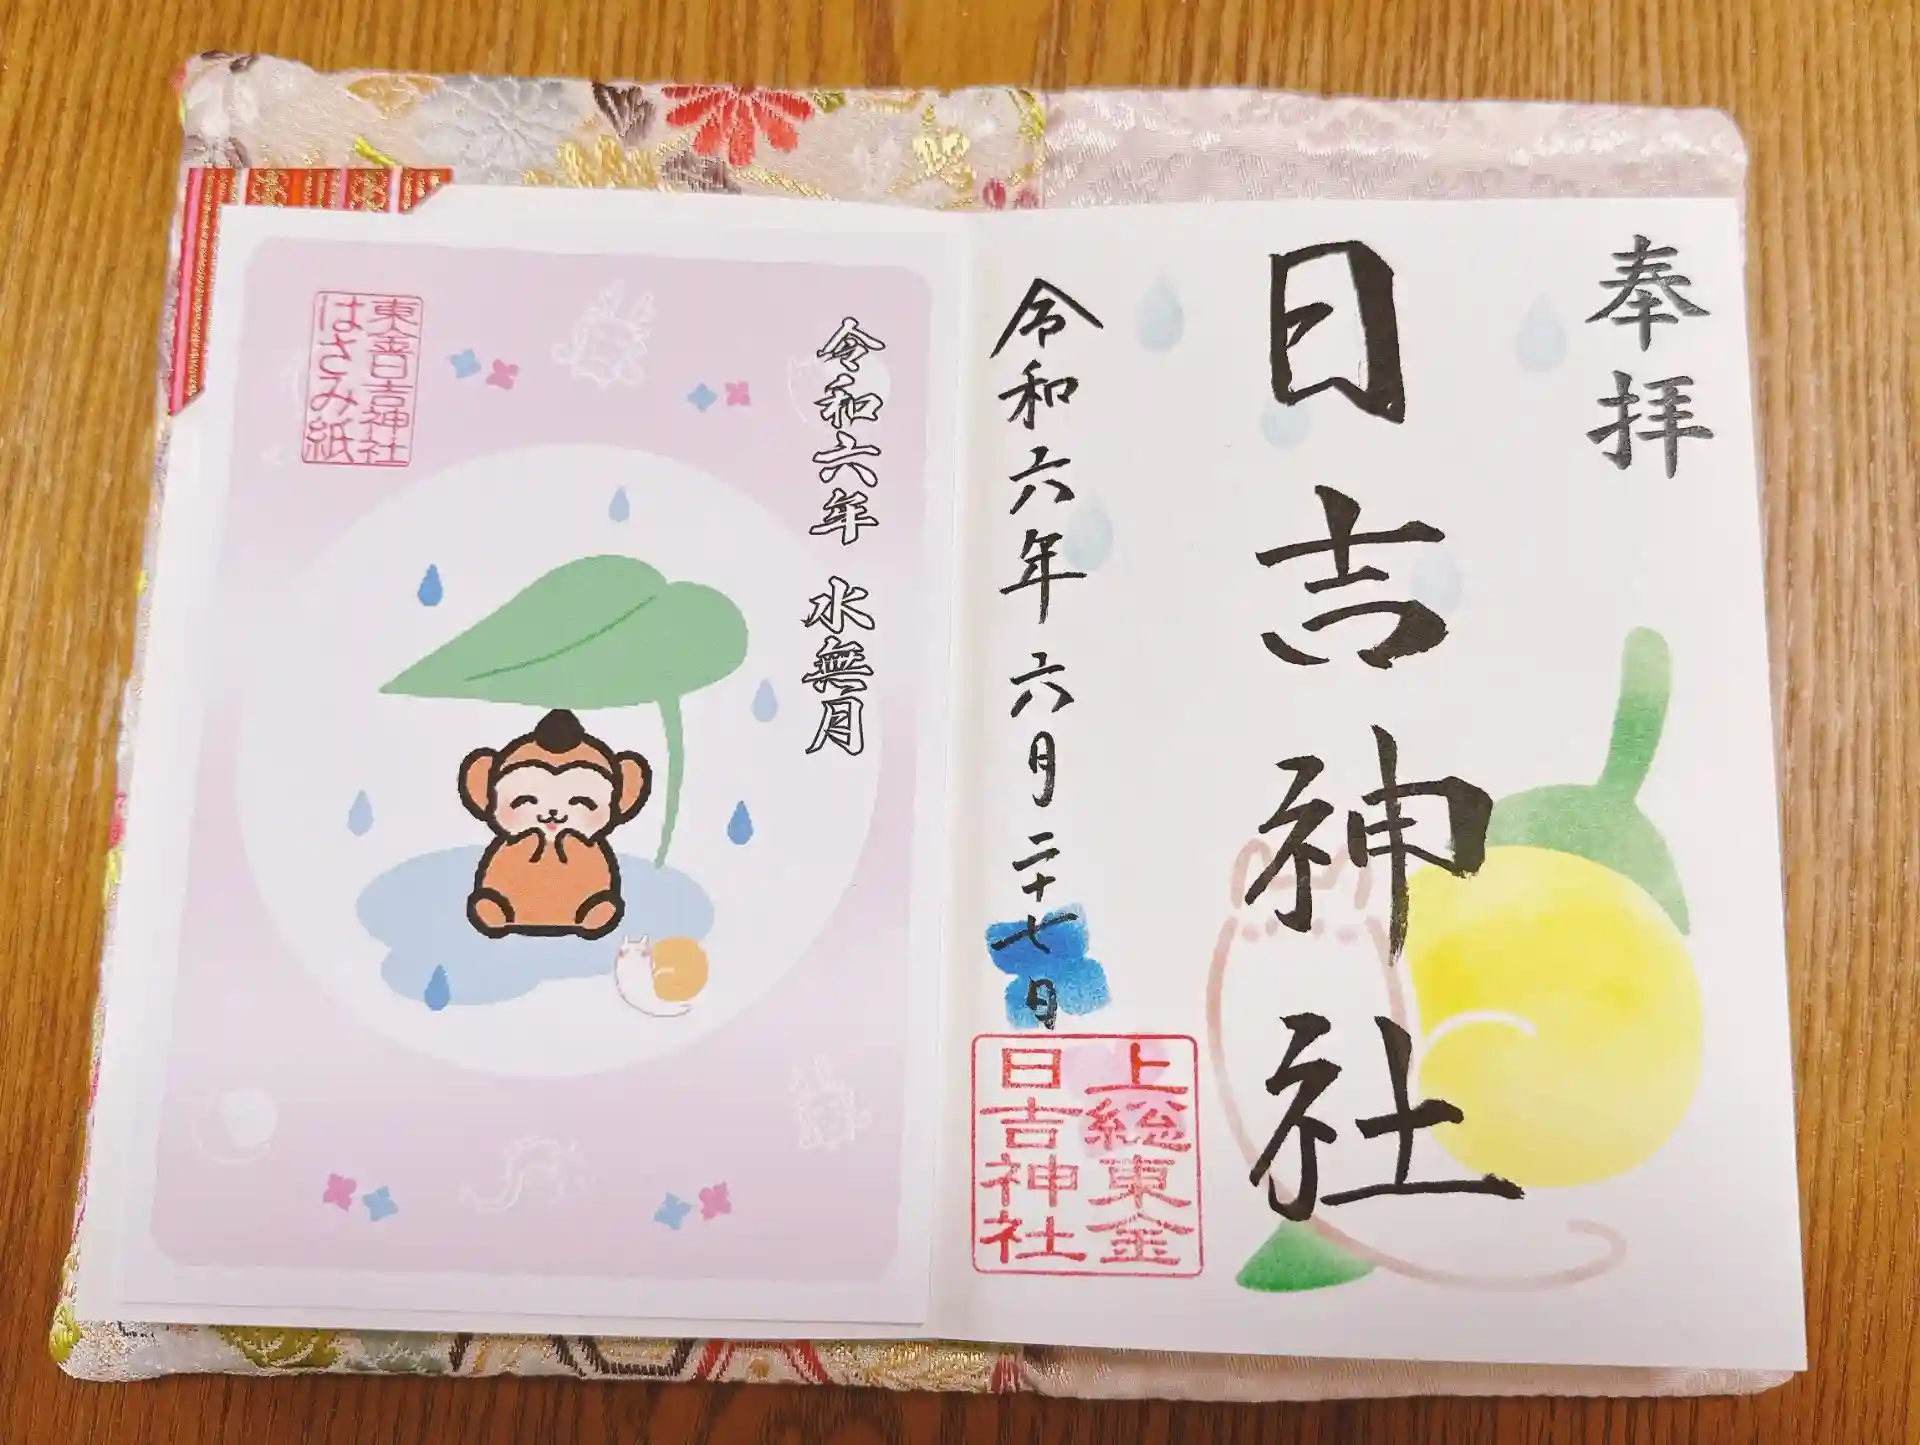 奉拝
日吉神社
令和六年六月二十七日
上総東金
日吉神社
令和六年 水無月
東金日吉神社
はさみ紙